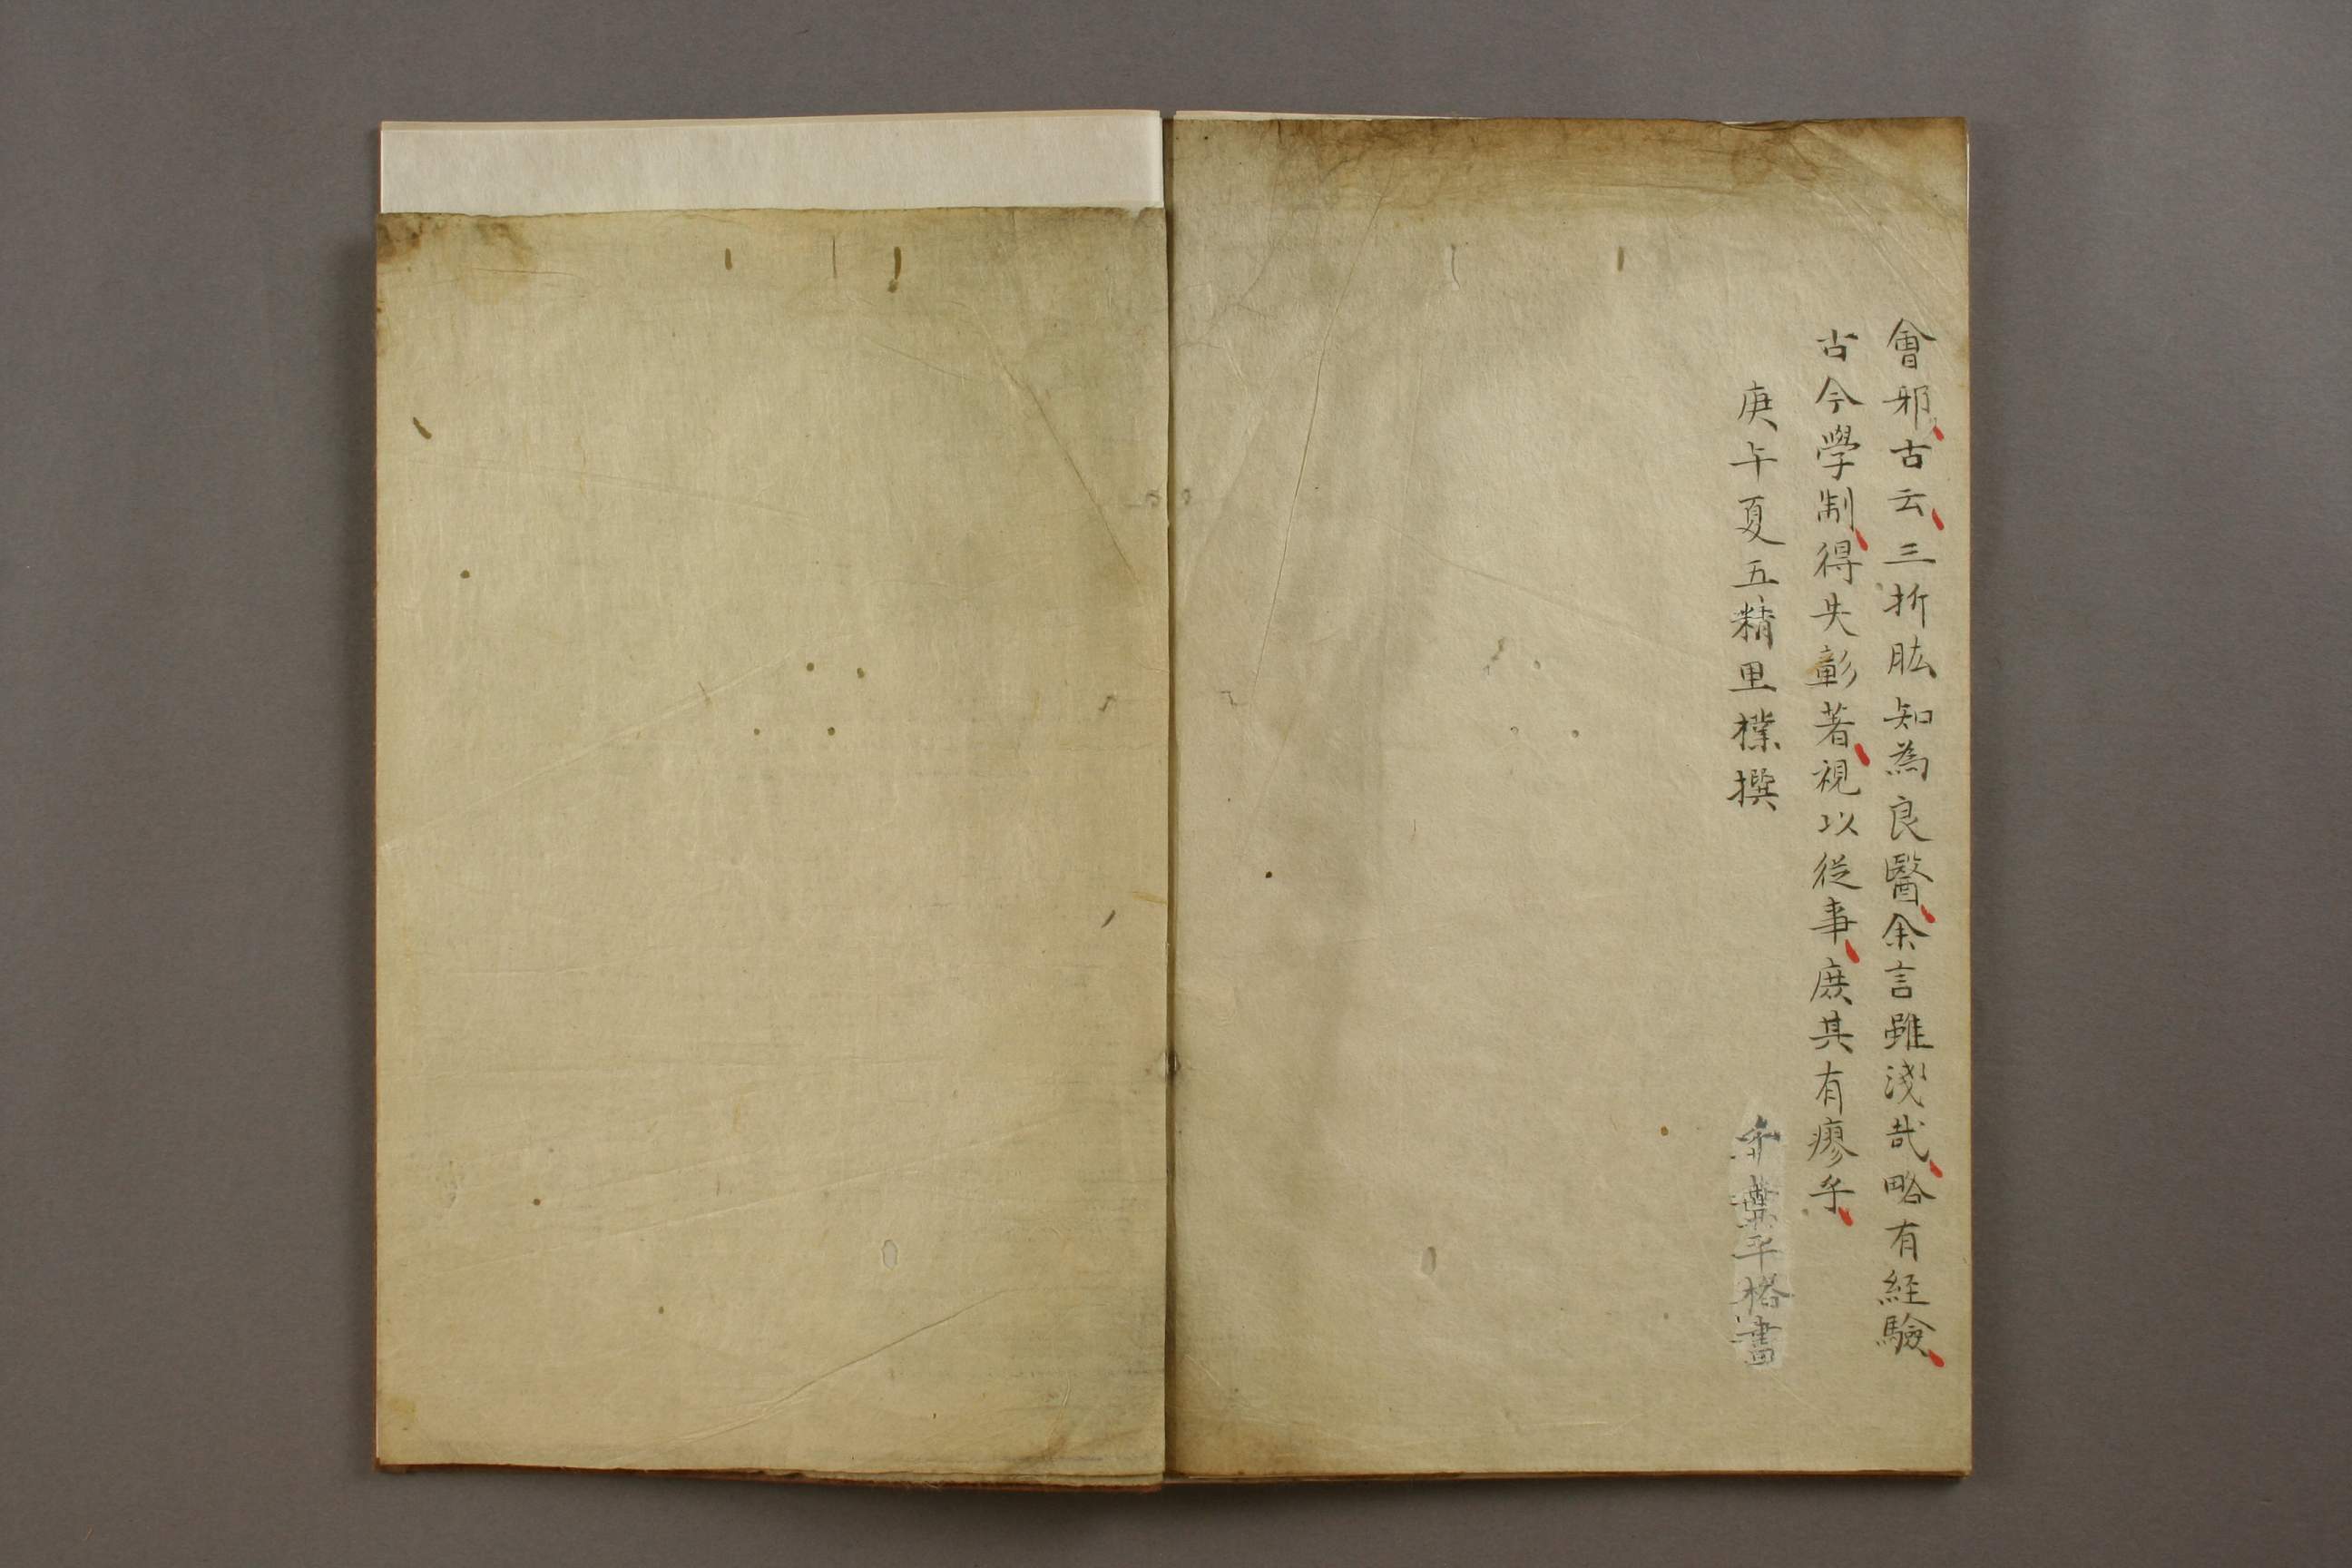 會邪古云三折肱知為良醫余言雖淺哉略有経驗
古今學制得失彰著視以従事庶其有瘳乎
庚午夏五精里樸撰
平格書